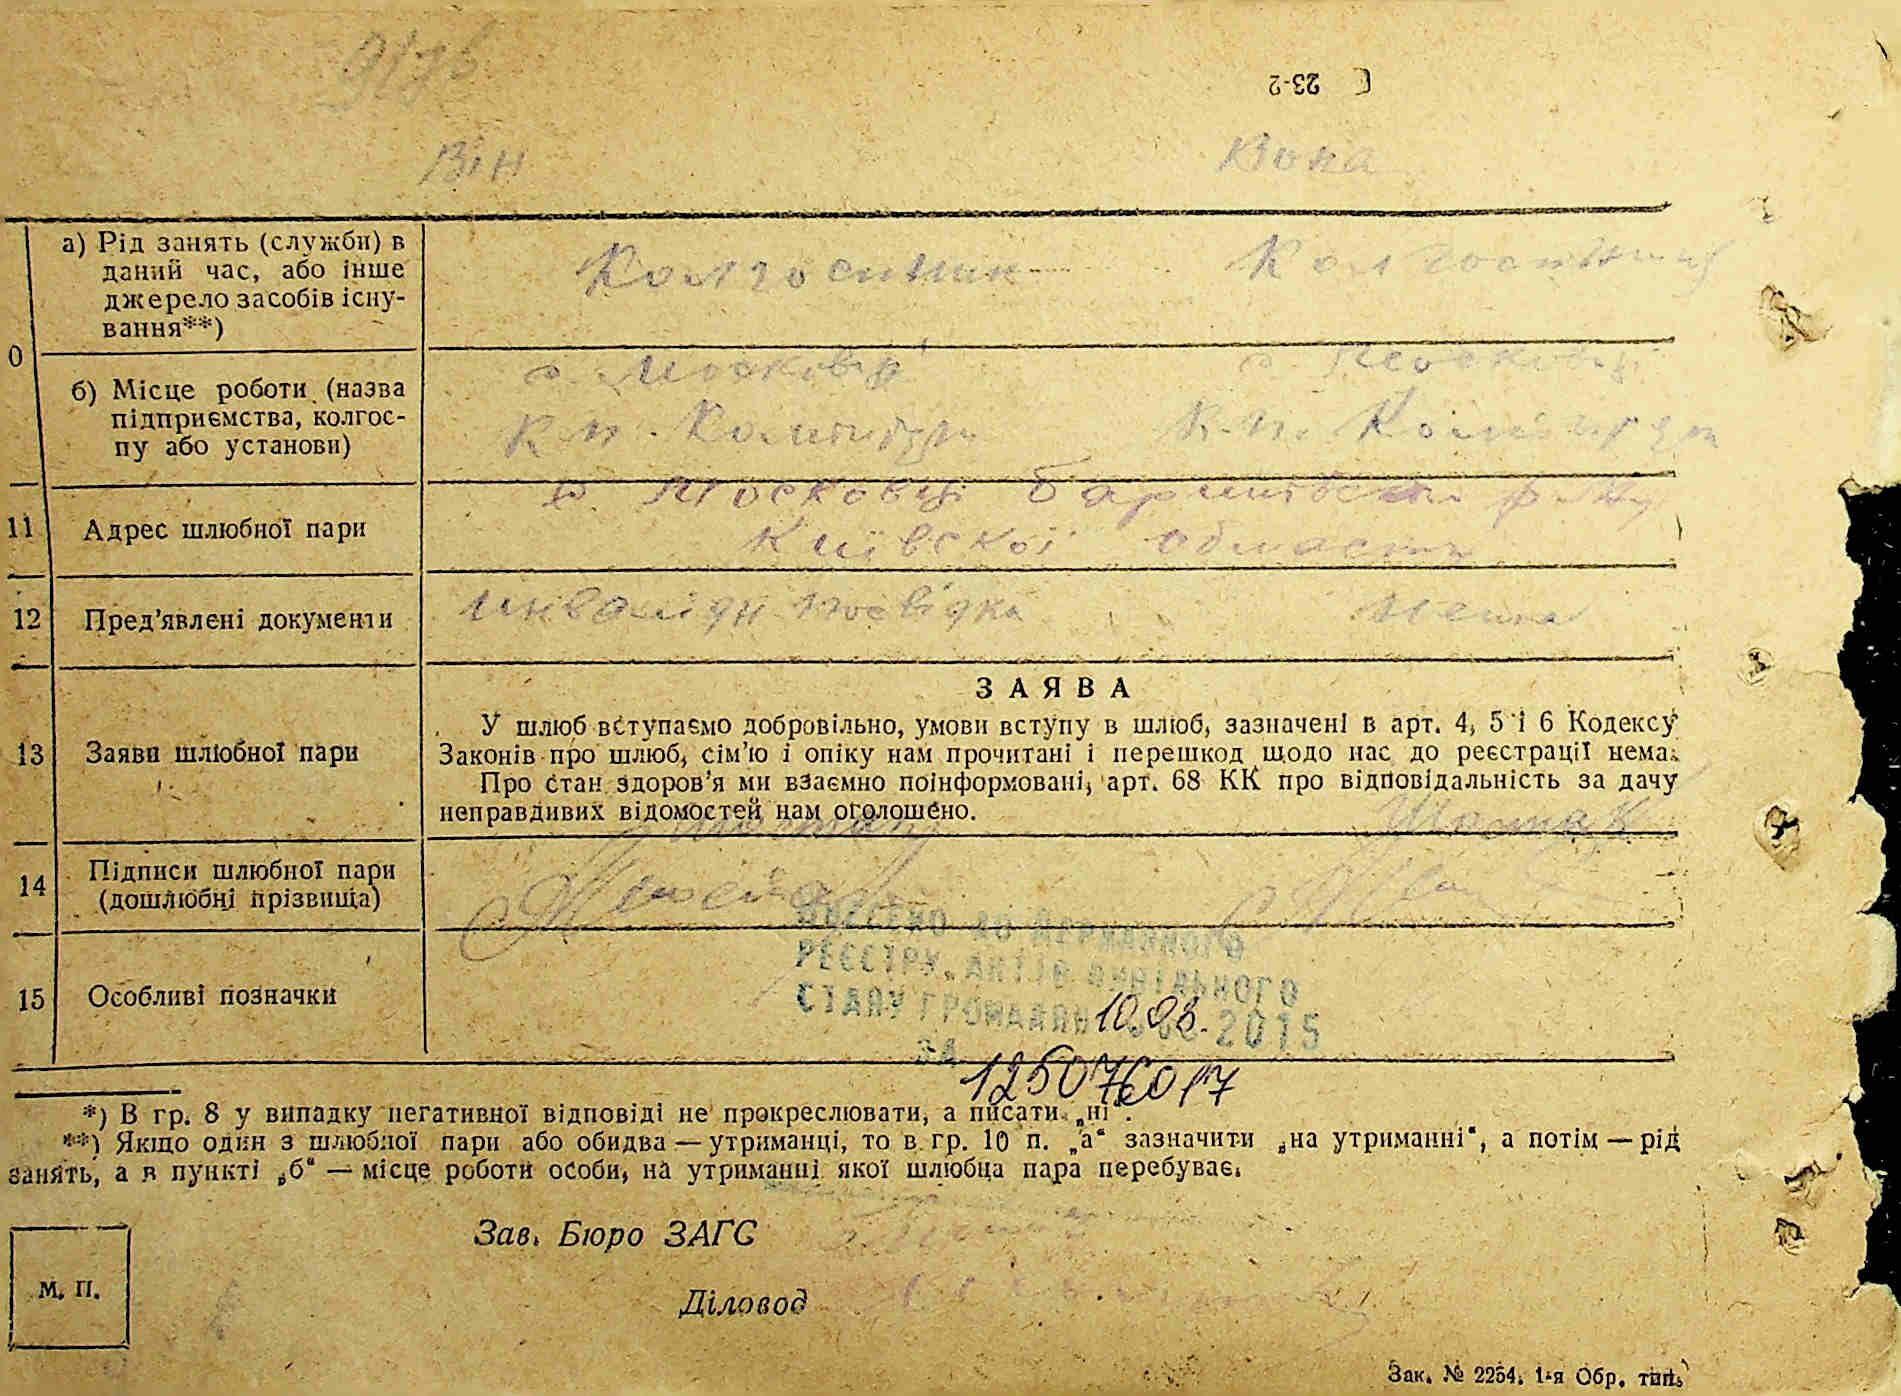 23-2
Він Вона
а) Рід занять (служби) в
даний час, або інше
джерело засобів існу-
вання**)
Колгоспник Колгоспниця
0
б) Місце роботи (назва
підприємства, колгос-
пу або установи)
с. Московці с. Московці
К.П. Комінтерн К.П. Комінтерн
11 Адрес шлюбної пари
с. Московці Баришівськ. р-ну
Київскої области
12 Пред'явлені документи
Инвалідн посвідка нема
13 Заяви шлюбної пари
ЗАЯВА
У шлюб вступаємо добровільно, умови вступу в шлюб, зазначені в арт. 4, 5 і 6 Кодексу
Законів про шлюб, сім'ю і опіку нам прочитані і перешкод щодо нас до реєстрації нема.
Про стан здоров'я ми взаємно поінформовані, арт. 68 КК про відповідальність за дачу
неправдивих відомостей нам оголошено.
14 Підписи шлюбної пари
(дошлюбні прізвища)
ВНЕСЕНО ДО ДЕРЖАВНОГО
РЕЄСТРУ АКТІВ ЦИВІЛЬНОГО
СТАНУ ГРОМАДЯН 10.03. 2015
ЗА
125076017
15 Особливі позначки
*) В гр. 8 у випадку негативної відповіді не прокреслювати, а писати „ні".
**) Якщо один з шлюбної пари або обидва — утриманці, то в гр. 10 п. „а" зазначити „на утриманні", а потім — рід
занять, а в пункті „б" — місце роботи особи, на утриманні якої шлюбна пара перебуває.
Зав. Бюро ЗАГС
М. П.
Діловод
Зак. № 2254. 1-я Обр. тип.